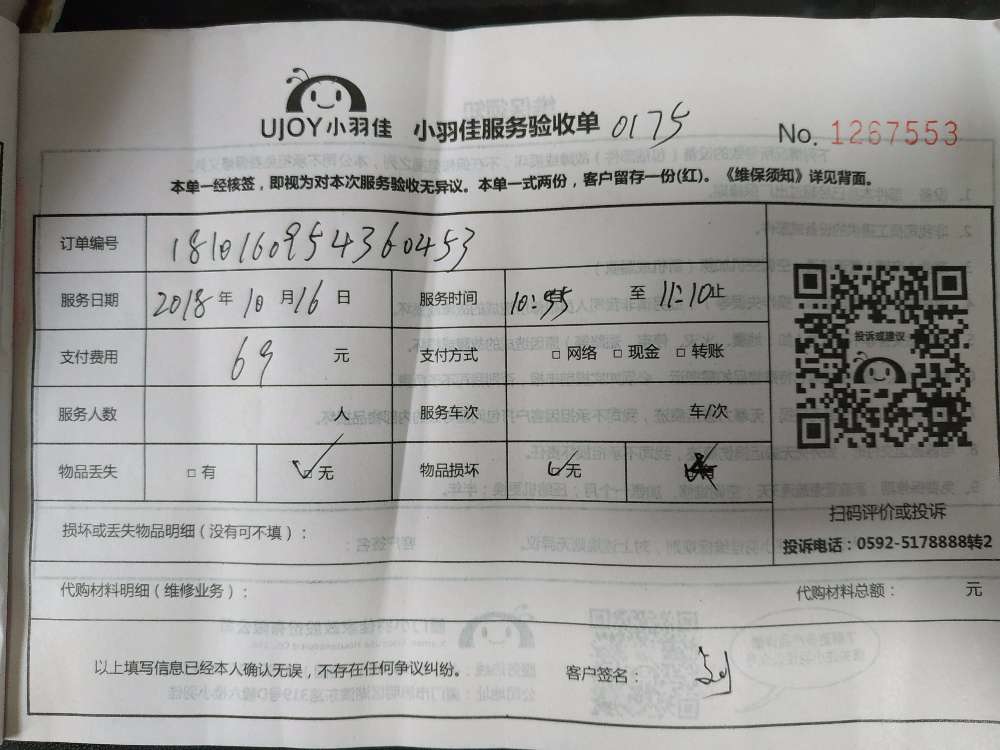 UJOY小羽佳 小羽佳服务验收单 0175 No. 1267553
本单一经核签，即视为对本次服务验收无异议。本单一式两份，客户留存一份(红)。《维保须知》详见背面。
订单编号 1810160954360453
服务日期 2018 年 10 月 16 日 服务时间 10:55 至 11:10止
支付费用 69 元 支付方式 □ 网络 □ 现金 □ 转账
服务人数 人 服务车次 车/次
物品丢失 □ 有 ✓ 无 物品损坏 ✓无
投诉或建议
扫码评价或投诉
损坏或丢失物品明细（没有可不填）：
投诉电话：0592-5178888转2
代购材料明细（维修业务）： 代购材料总额： 元
以上填写信息已经本人确认无误，不存在任何争议纠纷。 客户签名：